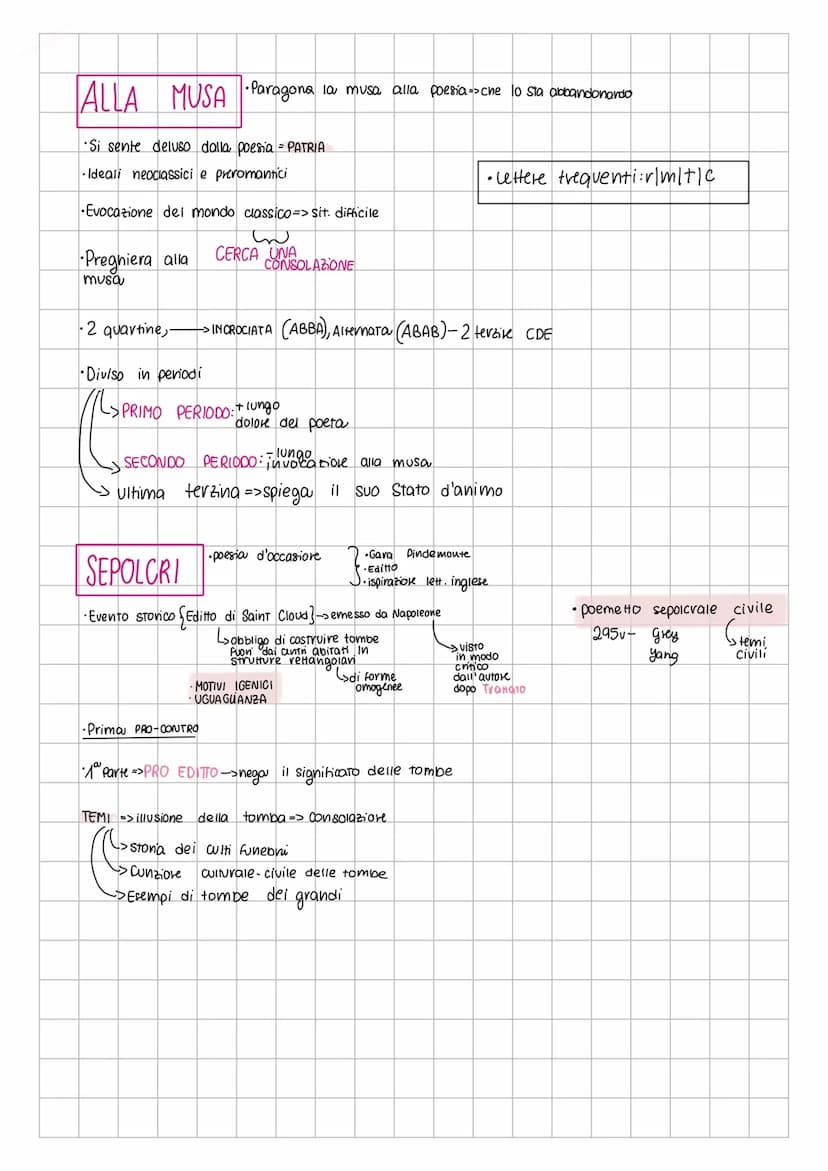 ALLA MUSA
·Paragona la musa alla poesia=>che lo sta abbandonando
·Si sente deluso dalla poesia = PATRIA
·Ideali neoclassici e preromantici
·Lettere frequenti:r|m|t|c
·Evocazione del mondo classico=> sit. difficile
CERCA UNA
CONSOLAZIONE
·Preghiera alla
musa
·2 quartine,→INCROCIATA (ABBA), Alternata (ABAB)- 2 terzine CDE
·Diviso in periodi
→PRIMO PERIODO:+ lungo
dolore del poeta
→SECONDO PERIODO:- lungo
invocazione alla musa
→ultima terzina =>spiega il suo stato d'animo
SEPOLCRI
·poesia d'occasione
·Gara Pindemonte
·Editto
·ispirazione lett. inglese
·Evento storico {Editto di Saint Cloud}→emesso da Napoleone
→obbligo di costruire tombe
fuori dai centri abitati in
strutture rettangolari
→di forme
omogenee
·MOTIVI IGENICI
·UGUAGLIANZA
→visto
in modo
critico
dall'autore
dopo Trattato
·poemetto sepolcrale civile
295v- Grey
Yang
→temi
civili
·Prima PRO-CONTRO
·1ª Parte =>PRO EDITTO→nega il significato delle tombe
TEMI =>illusione della tomba=> consolazione
→storia dei culti funebri
→Cunzione culturale-civile delle tombe
→Esempi di tombe dei grandi